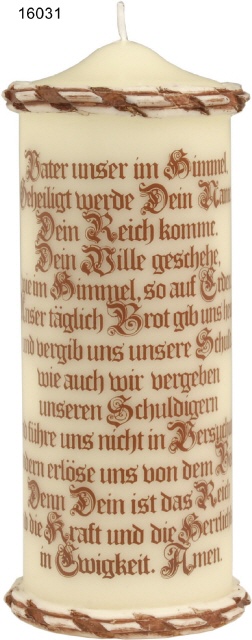 16031
Vater unser im Himmel,
Geheiligt werde Dein Nam
Dein Reich komme.
Dein Wille geschehe,
wie im Himmel, so auf Erde
Unser täglich Brot gib uns he
und vergib uns unsere Schul
wie auch wir vergeben
unseren Schuldigern
führe uns nicht in Versuchu
dern erlöse uns von dem B
Denn Dein ist das Reich
die Kraft und die Herrlich
in Ewigkeit. Amen.